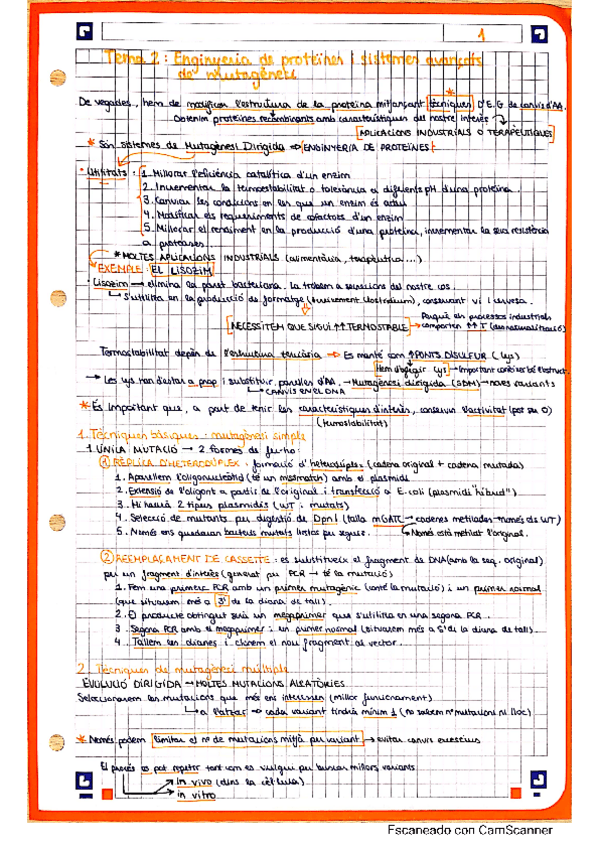 1
Tema 2: Enginyeria de proteïnes i sistemes avançats
de mutagènesi
De vegades, hem de modificar l'estructura de la proteïna mitjançant tècniques D'E.G de canvis d'AA.
Obtenim proteïnes recombinants amb característiques del nostre interès
APLICACIONS INDUSTRIALS O TERAPÈUTIQUES
* Són sistemes de Mutagènesi Dirigida → ENGINYERIA DE PROTEÏNES
· Utilitats: 1. Millorar l'eficiència catalítica d'un enzim
2. Incrementar la termoestabilitat o tolerància a diferents pH d'una proteïna.
3. Canviar les condicions en les que un enzim és actiu
4. Modificar els requeriments de cofactors d'un enzim
5. Millorar el rendiment en la producció d'una proteïna, incrementar la seva resistència
a proteases...
* MOLTES APLICACIONS INDUSTRIALS (alimentària, terapèutica...)
EXEMPLE: EL LISOZIM
· Lisozim → elimina la paret bacteriana. La trobem a secrecions del nostre cos.
↳ S'utilitza en la producció de formatge ( Clostridium), conservant vi i cervesa.
Perquè en processos industrials
NECESSITEM QUE SIGUI ↑↑ TERMOSTABLE → comporten ↑↑ T (desnaturalització)
Termostabilitat depèn de l'estructura terciària → Es manté com ↑PONTS DISULFUR (Cys)
Hem d'afegir cys → Important conèixer bé l'estruct.
→ Les cys han d'estar a prop i substituir, parallen d'AA. → Mutagènesi dirigida (SDM) → noves variants
↳ CANVIS EN EL DNA
* És important que, a part de tenir les característiques d'interès, conservin l'activitat (per se O)
(termostabilitat)
1. Tècniques bàsiques: mutagènesi simple
1 ÚNICA MUTACIÓ → 2 formes de fer-ho:
① RÈPLICA D'HETERODÚPLEX: formació d'heterodúplex (cadena original + cadena mutada)
1. Aparellem l'oligonucleòtid (té un mismatch) amb el plasmidi
2. Extensió de l'oligont a partir de l'original i transfecció a E. coli (plasmidi "híbrid")
3. Hi haurà 2 tipus plasmidis (WT i mutats)
4. Selecció de mutants per digestió de DpnI (talla mGATC → cadenes metilades → només els WT)
5. Només ens quedaran bacteris mutats lliures per seguir.
↳ Només està metilat l'original.
② REEMPLAÇAMENT DE CASSETTE: es substitueix el fragment de DNA (amb la seq. original)
per un fragment d'interès (generat per PCR → té la mutació)
1. Fem una primera PCR amb un primer mutagènic (conté la mutació) i un primer normal
(que situarem més a 3' de la diana de tall).
2. El producte obtingut serà un megaprimer que s'utilitza en una segona PCR.
3. Segona PCR amb el megaprimer i un primer normal (situarem més a 5' de la diana de tall).
4. Tallem les dianes i clonem el nou fragment al vector.
2. Tècniques de mutagènesi múltiple
EVOLUCIÓ DIRIGIDA → MOLTES MUTACIONS ALEATÒRIES
Seleccionarem les mutacions que més ens interessin (millor funcionament)
↳ a l'atzar → cada variant tindrà mínim 1 (no sabem nº mutacions ni lloc)
* Només podem limitar el nº de mutacions mitjà per variant → evitar canvis excessius
El procés es pot repetir tant com es vulgui per buscar millors variants
→ in vivo (dins la cèl·lula)
→ in vitro
Escaneado con CamScanner